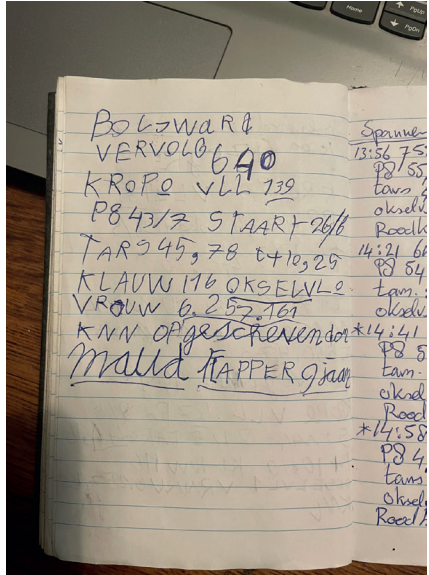 BOLSWARD
VERVOLG 640
KROPO VLL 139
P8 43/7 STAART 26/6
TARS 45,78 t+10,25
KLAUW 116 OKSELVLO
VROUW 6.257.161
KNN OPgescheven dor
Maud KAPPER 9 jaar
Spannen
13:56 75
P8 55
tars
oksel
Roodk
14:21 6
P8 54
tam.
okselv
*14:41
P8 5
tam.
oksel
Rood
*14:58
P8 4
tars
oksel
Rood
Home
PgUp
PgDn